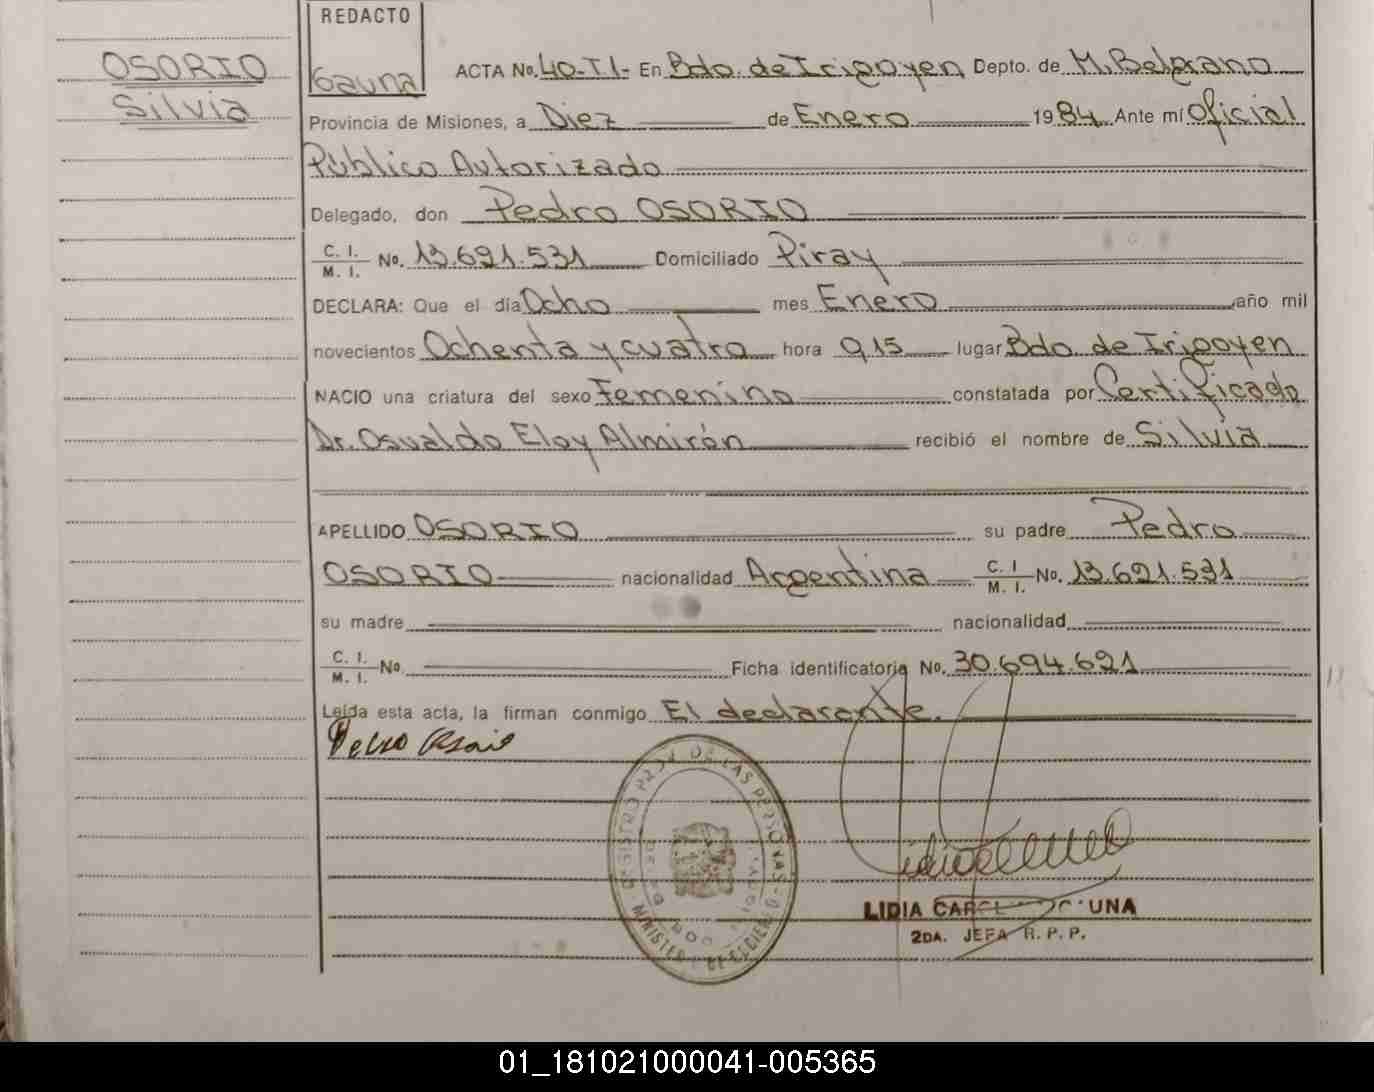 REDACTO
OSORIO
Silvia
Gauna
ACTA No. 40-TI- En Bdo. de Irigoyen Depto. de M. Belgrano
Provincia de Misiones, a Diez de Enero 1984 Ante mí Oficial
Público Autorizado
Delegado, don Pedro OSORIO
C. I.
M. I. No. 13.621.531 Domiciliado Piray
DECLARA: Que el día Ocho mes Enero año mil
novecientos Ochenta y cuatro hora 9,15 lugar Bdo. de Irigoyen
NACIO una criatura del sexo Femenino constatada por Certificado
Dr. Osvaldo Eloy Almirón recibió el nombre de Silvia
APELLIDO OSORIO su padre Pedro
OSORIO nacionalidad Argentina C. I. M. I. No. 13.621.531
su madre nacionalidad
C. I.
M. I. No. Ficha identificatoria No. 30.694.621
Leída esta acta, la firman conmigo El declarante.
Pedro Osorio
REGISTRO PROV. DE LAS PERSONAS
LIDIA UNA
2DA. JEFA R. P. P.
01_181021000041-005365